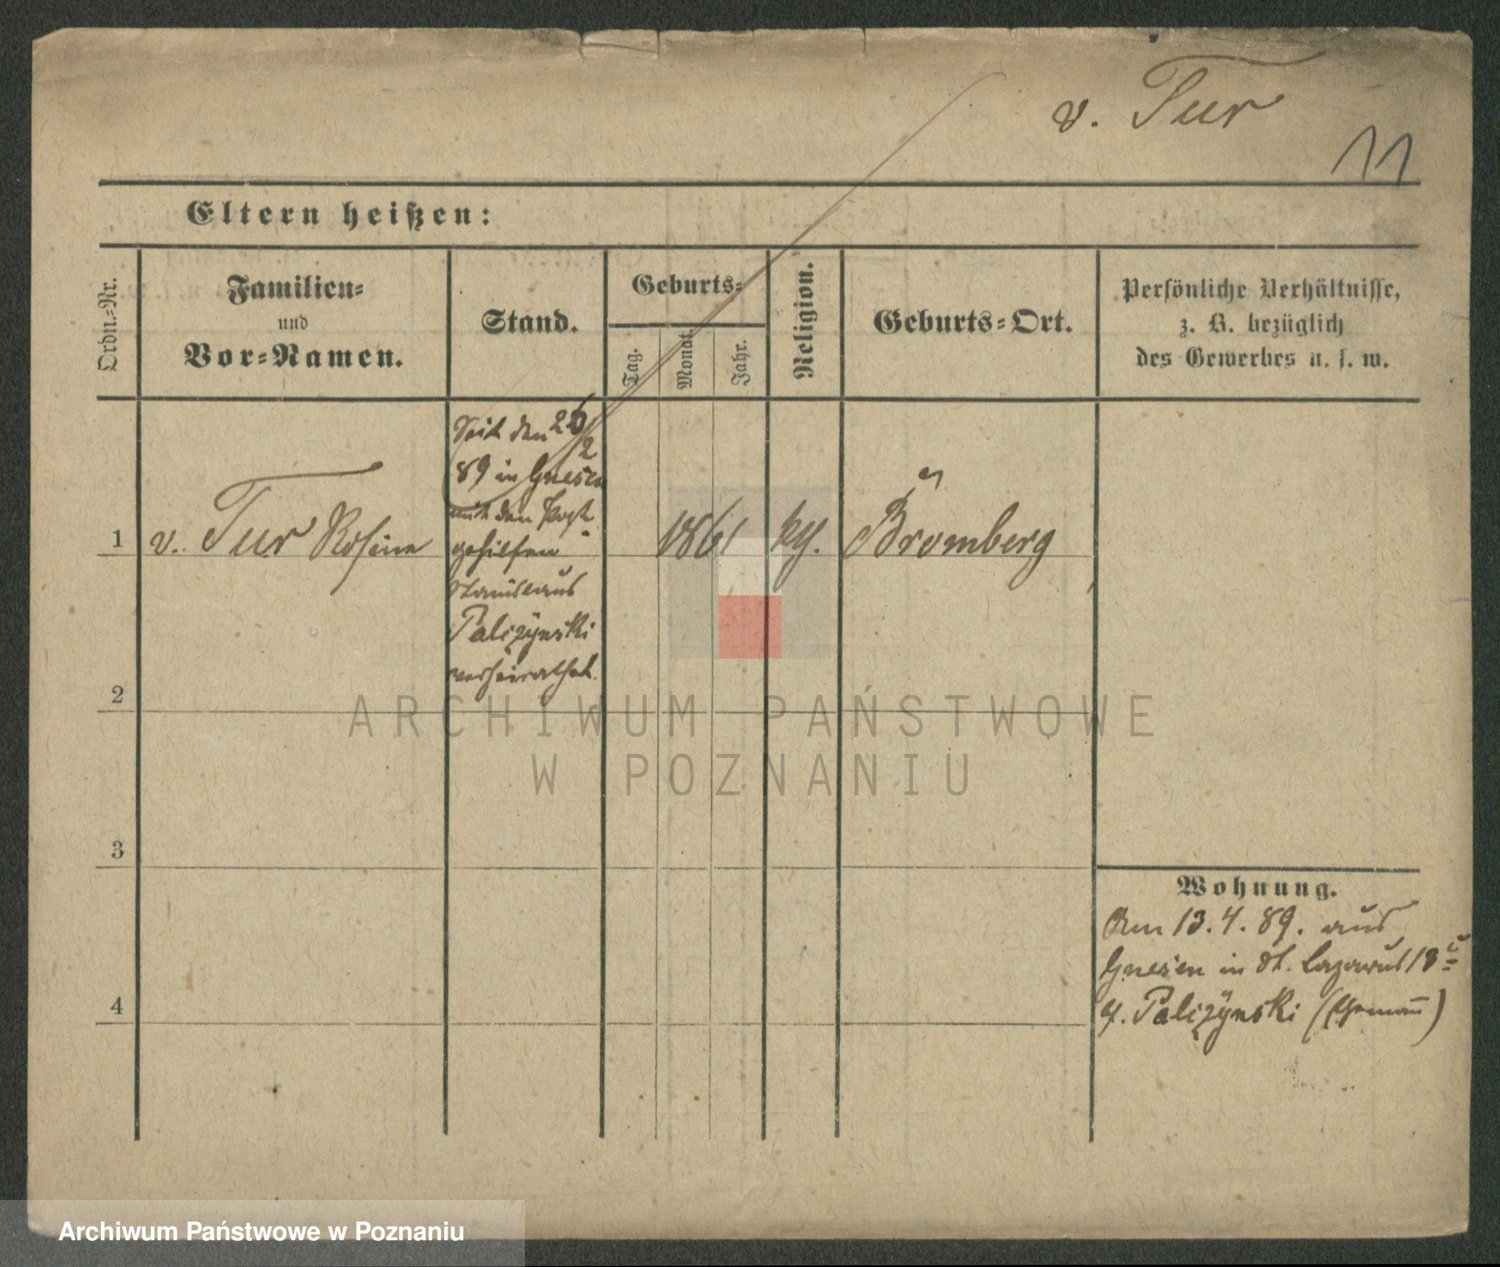 v. Tur
11
Eltern heißen:
Ordn.-Nr.
Familien-
und
Vor-Namen.
Stand.
Geburts-
Tag.
Monat.
Jahr.
Religion.
Geburts-Ort.
Persönliche Verhältnisse,
z. B. bezüglich
des Gewerbes u. s. w.
1
v. Tur Rosina
Seit den 26/2
89 in Gnesen
mit den Post
gehilfen
Stanislaus
Palczynski
verheirathet.
1861
Bromberg
2
3
4
Wohnung.
Am 13.4.89. aus
Gnesen in St. Lazarus 18
Palczynski (Ehemann)
ARCHIWUM PAŃSTWOWE
W POZNANIU
Archiwum Państwowe w Poznaniu